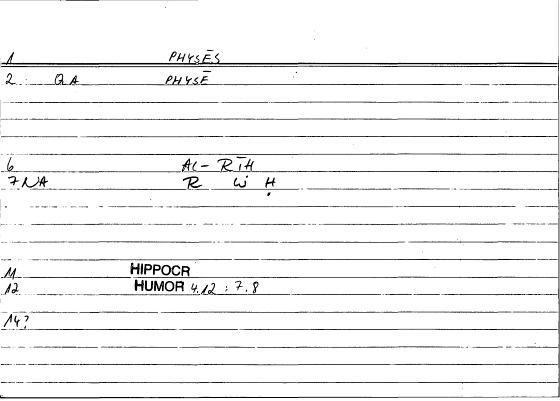 1 PHYSĒS
2 QA PHYSĒ
6 AL-RĪḤ
7 NA R W Ḥ
11 HIPPOCR
12 HUMOR 4.12 : 7.8
14?